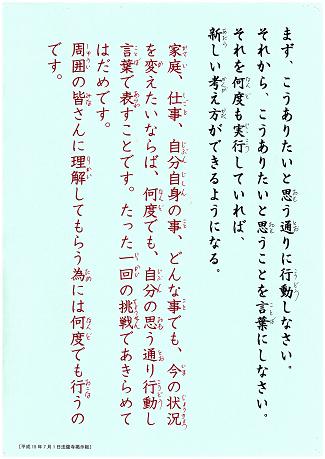 まず、こうありたいと思う通りに行動しなさい。
それから、こうありたいと思うことを言葉にしなさい。
それを何度も実行していれば、
新しい考え方ができるようになる。
家庭、仕事、自分自身の事、どんな事でも、今の状況
を変えたいならば、何度でも、自分の思う通り行動し
言葉で表すことです。たった一回の挑戦であきらめて
はだめです。
周囲の皆さんに理解してもらう為には何度でも行うの
です。